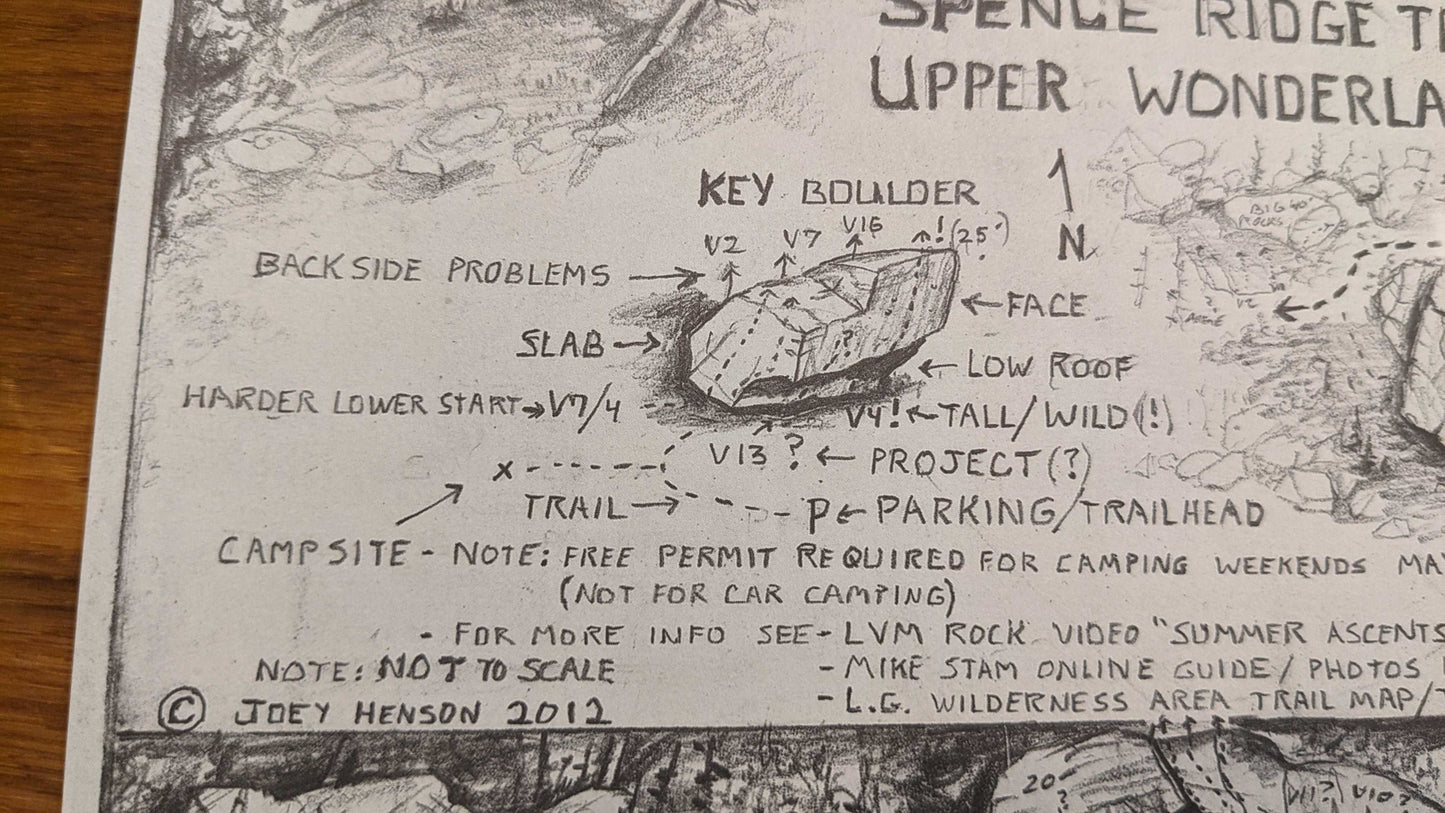 SPENCE RIDGE T
UPPER WONDERLA
KEY BOULDER
N
BIG 40'
ROCKS
V2 V7 V16 ! (25')
?
BACKSIDE PROBLEMS →
← FACE
SLAB →
?
← LOW ROOF
HARDER LOWER START → V7/4
V4! ← TALL/WILD (!)
V13 ? ← PROJECT (?)
X
TRAIL →
P ← PARKING/TRAILHEAD
CAMPSITE - NOTE: FREE PERMIT REQUIRED FOR CAMPING WEEKENDS MA
(NOT FOR CAR CAMPING)
- FOR MORE INFO SEE - LVM ROCK VIDEO "SUMMER ASCENTS
NOTE: NOT TO SCALE
- MIKE STAM ONLINE GUIDE / PHOTOS
- L.G. WILDERNESS AREA TRAIL MAP/
© JOEY HENSON 2012
20
?
V11? V10?